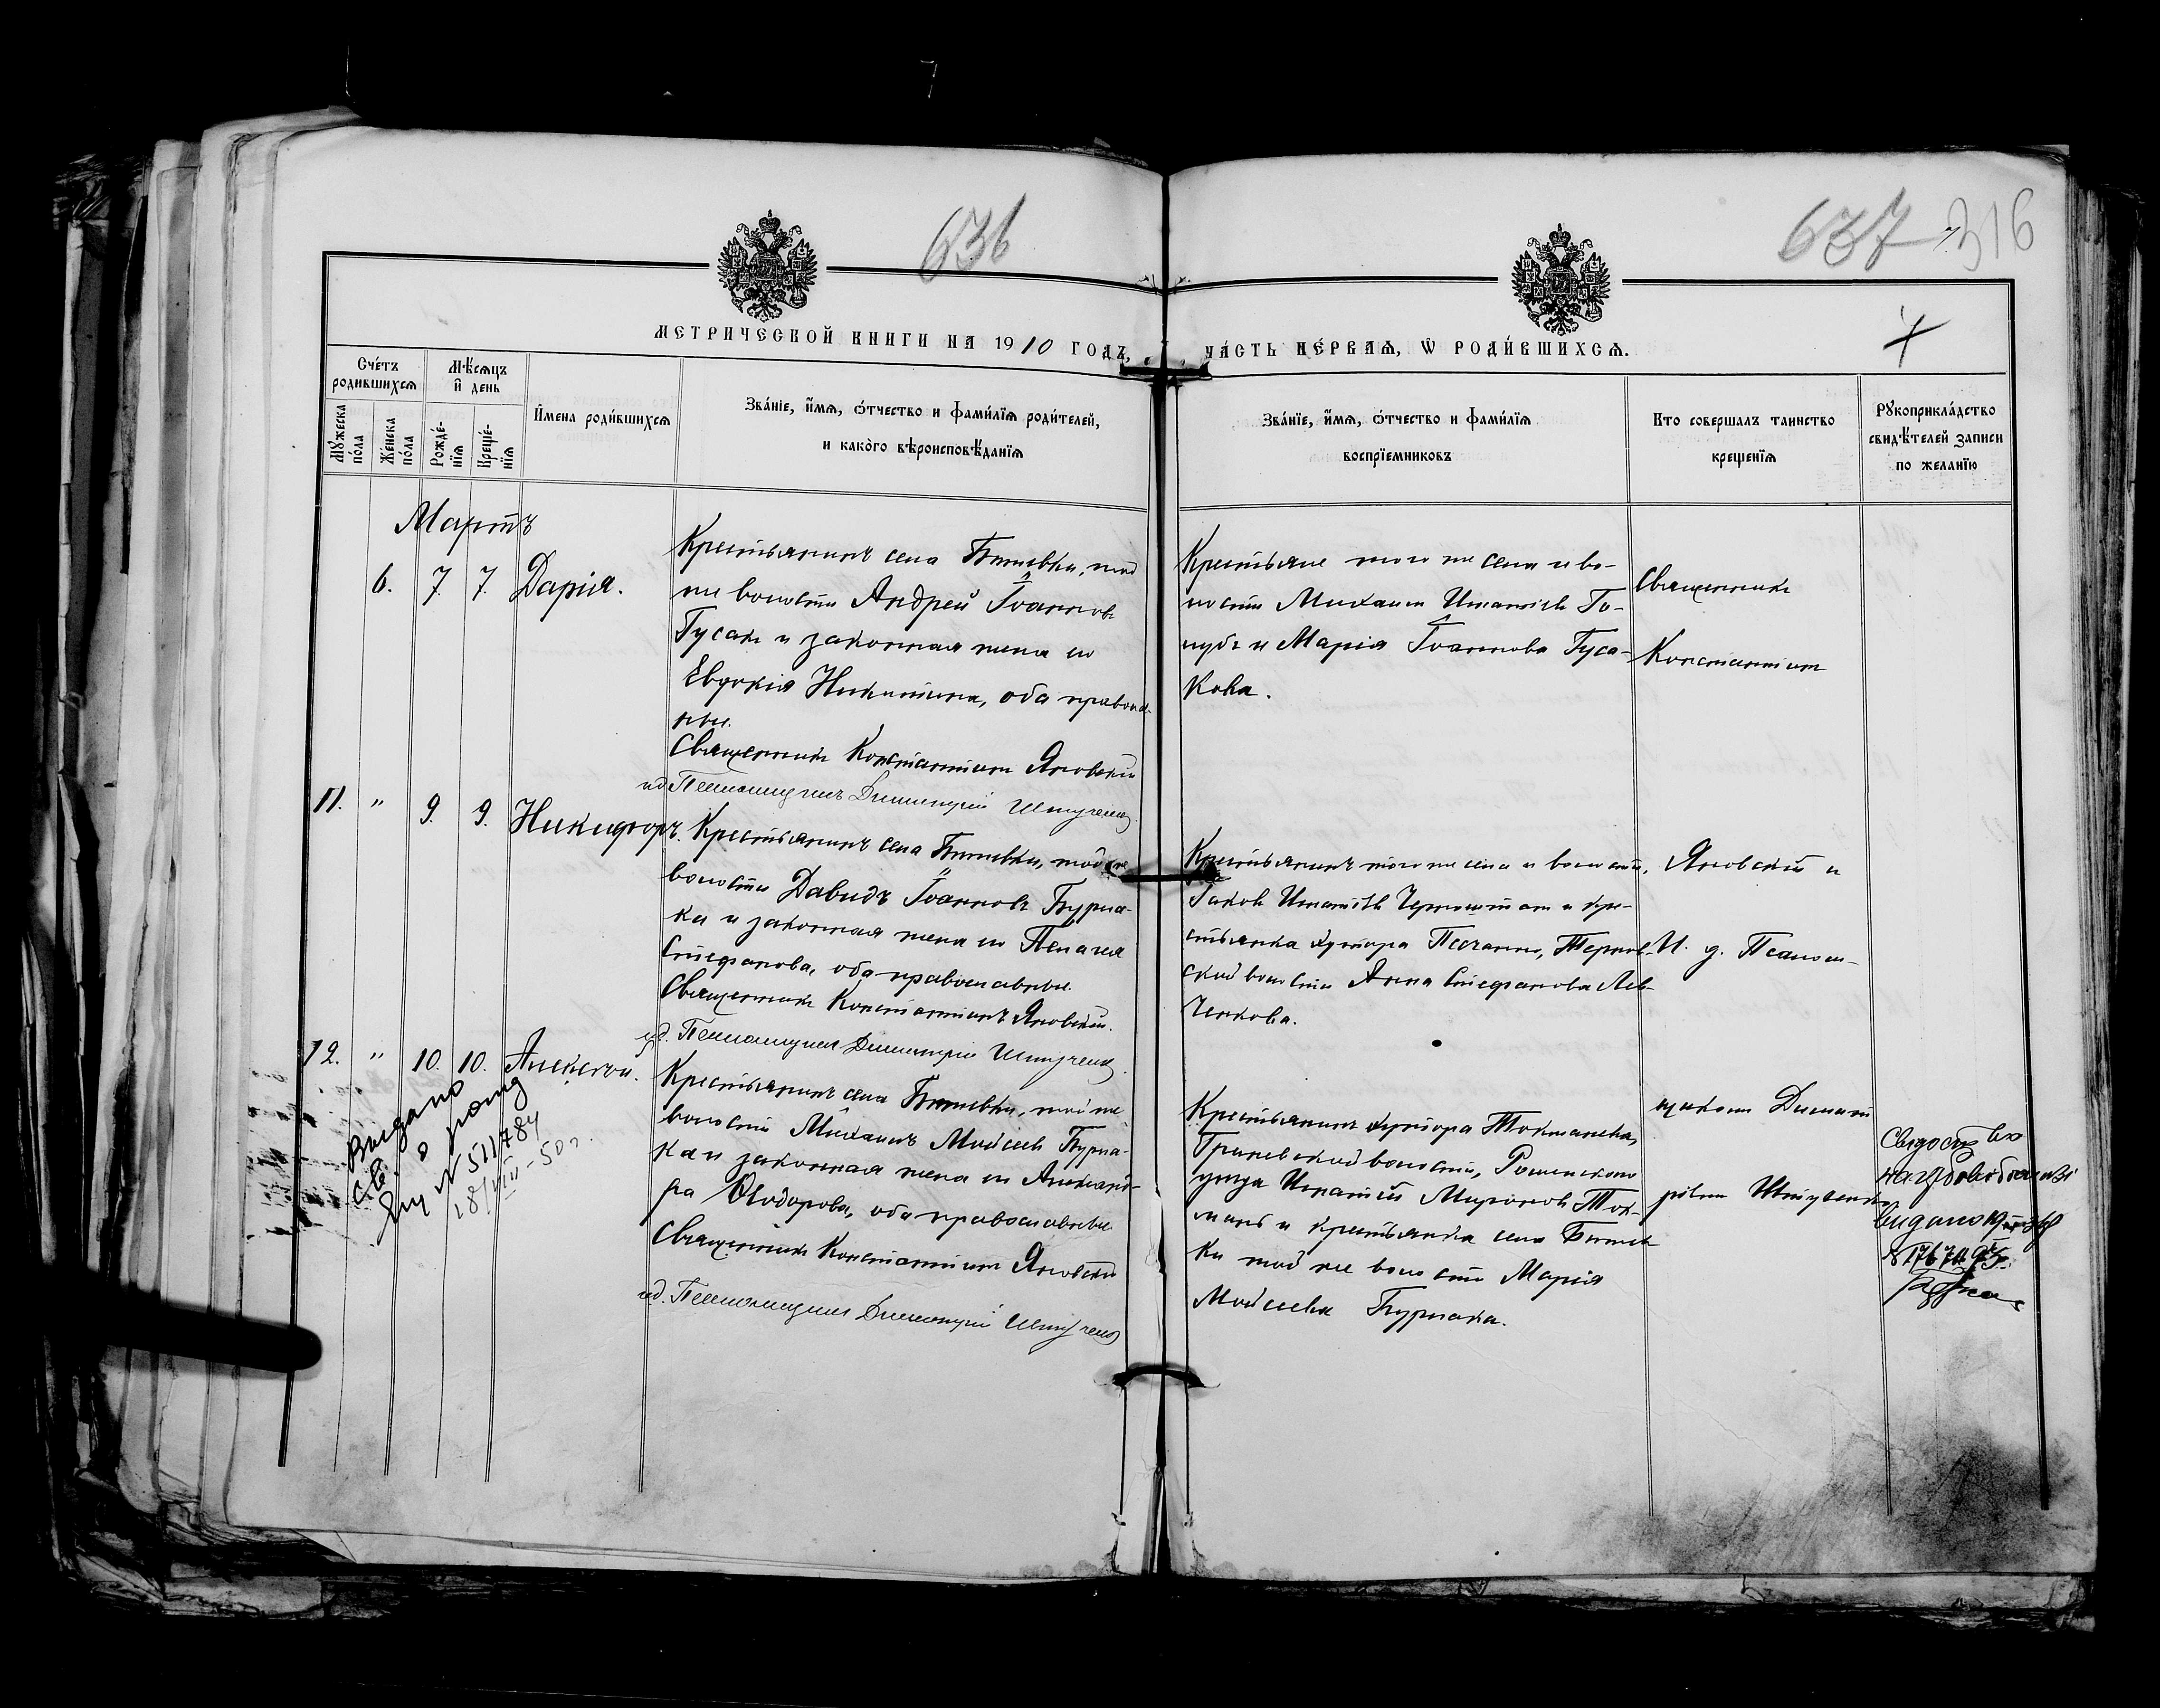 636
637 316
МЕТРИЧЕСКОЙ КНИГИ НА 1910 ГОДЪ,
ЧА́СТЬ ПЕ́РВАѦ, Ѡ РОДИ́ВШИХСѦ.
Сче́тъ родившихсѧ
Мѣ́сѧцъ и҆ день
И҆мена роди́вшихсѧ
Зва́нїе, и҆́мѧ, ѻ҆́тчество и фами́лїѧ роди́телей,
и како́го вѣроисповѣ́данїѧ
Мꙋ́жеска по́ла
Же́нска по́ла
Рожде́нїѧ
Креще́нїѧ
Зва́нїе, и҆́мѧ, ѻ҆́тчество и фами́лїѧ
воспрїемниковъ
Кто совершалъ таинство
крещенїѧ
Рꙋкоприкла́дство
свидѣ́телей записи
по желанїю
Мартъ
6. 7. 7. Дарія.
Крестьянинъ села Битевки, той
же волости Андрей Іоанновъ
Гусакъ и законная жена его
Евдокія Никитина, оба православ-
ные.
Священникъ Константинъ Яновскій
ид. Псаломщика Димитрій Штученко
Крестьяне того же села и во-
лости Михаилъ Игнатіевъ Го-
лубъ и Марія Іоаннова Гуса-
кова.
Священникъ
Константинъ
11. " 9. 9. Никифоръ.
Крестьянинъ села Битевки, той же
волости Давидъ Іоанновъ Бурла-
ка и законная жена его Пелагея
Стефанова, оба православные.
Священникъ Константинъ Яновскій.
ид. Псаломщика Димитрій Штученко
Крестьянинъ того же села и волости,
Іаковъ Игнатіевъ и кре-
стьянка хутора Песчанаго, Тернов-
ской волости Анна Стефанова Лев-
ченкова.
Яновскій и
И. д. Псалом-
12. " 10. 10. Алексѣй.
Крестьянинъ села Битевки, той же
волости Михаилъ Моисеевъ Бурла-
ка и законная жена его Александ-
ра Ѳеодорова, оба православные.
Священникъ Константинъ Яновскій
ид. Псаломщика Димитрій Штученко
Крестьянинъ хутора
волости, Роменскаго
уѣзда Игнатій Мироновъ Ток-
мань и крестьянка села Битев-
ки той же волости Марія
Моисеева Бурлака.
щикъ Димит-
рій Штученко
Выдано
св. о рожд
№ 511784
18/VIII-50 г.
видано